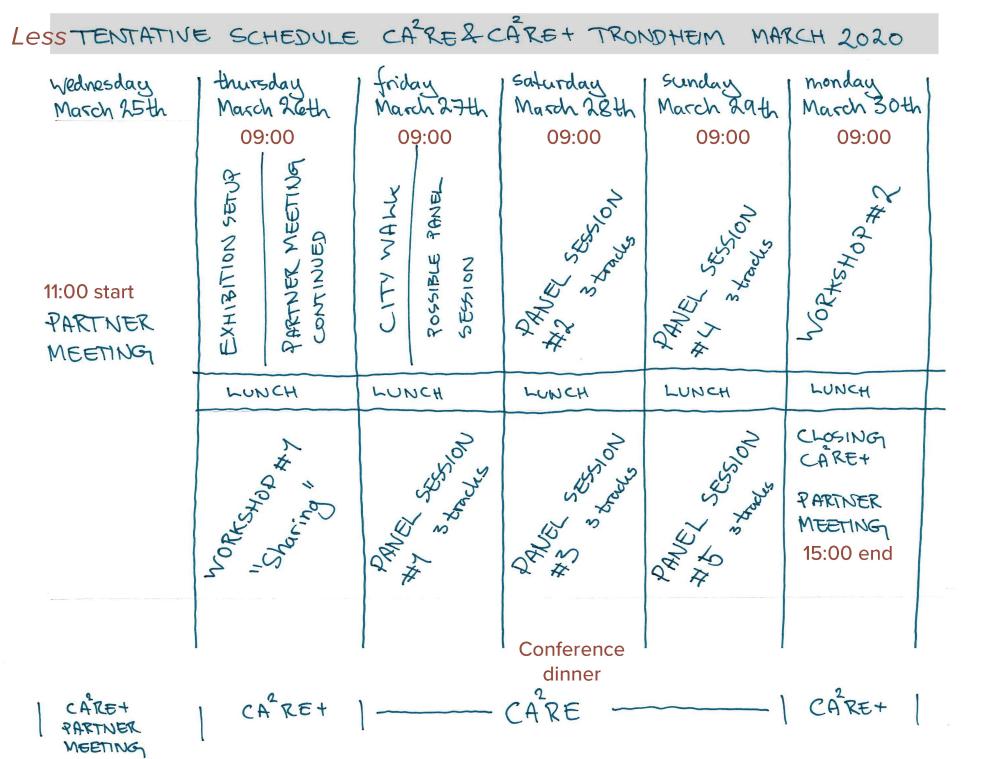 Less TENTATIVE SCHEDULE CA²RE & CA²RE+ TRONDHEIM MARCH 2020
wednesday
March 25th
11:00 start
PARTNER
MEETING
thursday
March 26th
09:00
EXHIBITION SETUP
PARTNER MEETING
CONTINUED
LUNCH
WORKSHOP #1
"Sharing"
friday
March 27th
09:00
CITY WALK
POSSIBLE PANEL
SESSION
LUNCH
PANEL SESSION
#1 3 tracks
saturday
March 28th
09:00
PANEL SESSION
#2 3 tracks
LUNCH
PANEL SESSION
#3 3 tracks
Conference
dinner
sunday
March 29th
09:00
PANEL SESSION
#4 3 tracks
LUNCH
PANEL SESSION
#5 3 tracks
monday
March 30th
09:00
WORKSHOP #2
LUNCH
CLOSING
CA²RE+
PARTNER
MEETING
15:00 end
CA²RE+
PARTNER
MEETING
CA²RE+
CA²RE
CA²RE+